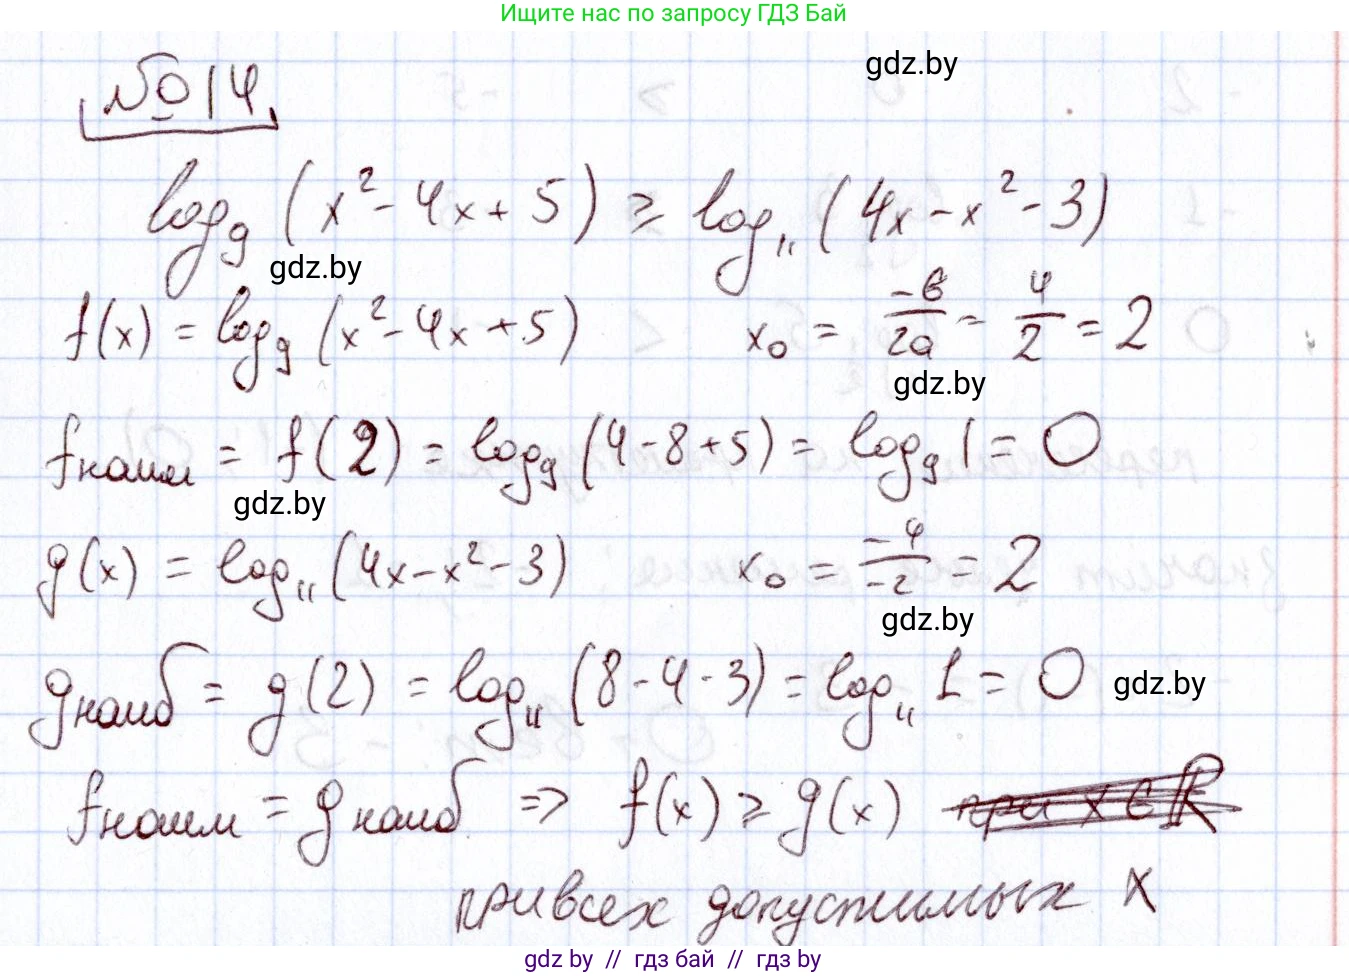 Ищите нас по запросу ГДЗ Бай
gdz.by
№ 14
log₉ (x² - 4x + 5) ≥ log₁₁ (4x - x² - 3)
gdz.by
f(x) = log₉ (x² - 4x + 5) x₀ = -в/2a = 4/2 = 2
gdz.by
fнаим = f(2) = log₉ (4 - 8 + 5) = log₉ 1 = 0
gdz.by
g(x) = log₁₁ (4x - x² - 3) x₀ = -4/-2 = 2
gdz.by
gнаиб = g(2) = log₁₁ (8 - 4 - 3) = log₁₁ 1 = 0 gdz.by
fнаим = gнаиб => f(x) ≥ g(x) при x ∈ R
при всех допустимых x
gdz by // гдз бай // гдз by